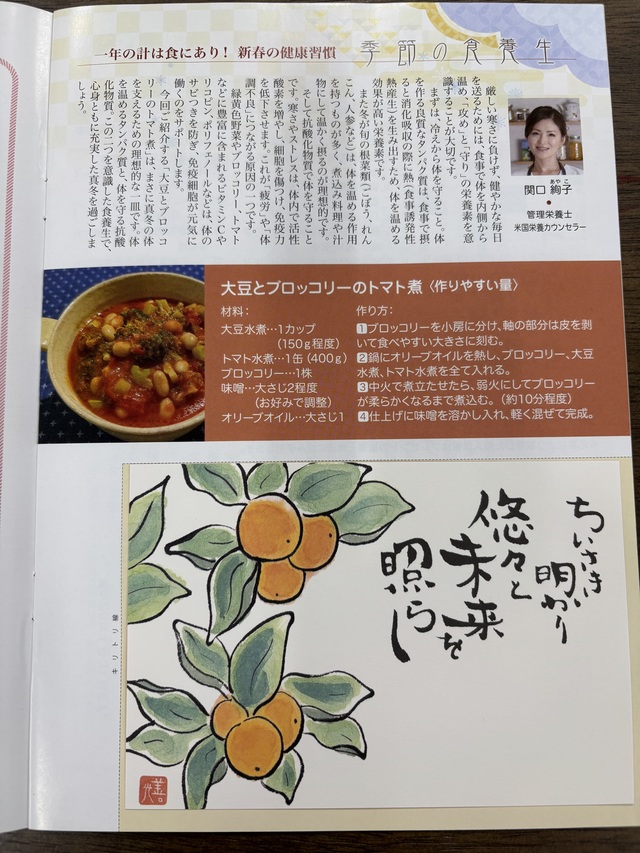 一年の計は食にあり！ 新春の健康習慣
季節の食養生
関口 絢子
あやこ
管理栄養士
米国栄養カウンセラー
厳しい寒さに負けず、健やかな毎日
を送るためには、食事で体を内側から
温め、「攻め」と「守り」の栄養素を意
識することが大切です。
まずは、冷えから体を守ること。体
を作る良質なタンパク質は、食事で摂
ると消化吸収の際に熱（食事誘発性
熱産生）を生み出すため、体を温める
効果が高い栄養素です。
また冬が旬の根菜類（ごぼう、れん
こん、人参など）は、体を温める作用
を持つものが多く、煮込み料理や汁
物にして温かく摂るのが理想的です。
そして、抗酸化物質で体を守ること
です。寒さやストレスは、体内で活性
酸素を増やし、細胞を傷つけ、免疫力
を低下させます。これが、「疲労」や「体
調不良」につながる原因の一つです。
緑黄色野菜やブロッコリー、トマト
などに豊富に含まれるビタミンCや
リコピン、ポリフェノールなどは、体の
サビつきを防ぎ、免疫細胞が元気に
働くのをサポートします。
今回ご紹介する「大豆とブロッコ
リーのトマト煮」は、まさに真冬の体
を支えるための理想的な一皿です。体
を温めるタンパク質と、体を守る抗酸
化物質。この二つを意識した食養生で、
心身ともに充実した真冬を過ごしま
しょう。
大豆とブロッコリーのトマト煮〈作りやすい量〉
材料：
大豆水煮…1カップ
（150g程度）
トマト水煮…1缶（400g）
ブロッコリー…1株
味噌…大さじ2程度
（お好みで調整）
オリーブオイル…大さじ1
作り方：
1 ブロッコリーを小房に分け、軸の部分は皮を剥
いて食べやすい大きさに刻む。
2 鍋にオリーブオイルを熱し、ブロッコリー、大豆
水煮、トマト水煮を全て入れる。
3 中火で煮立たせたら、弱火にしてブロッコリー
が柔らかくなるまで煮込む。（約10分程度）
4 仕上げに味噌を溶かし入れ、軽く混ぜて完成。
ちいさき
明かり
悠々と
未来を
照らし
キリトリ線